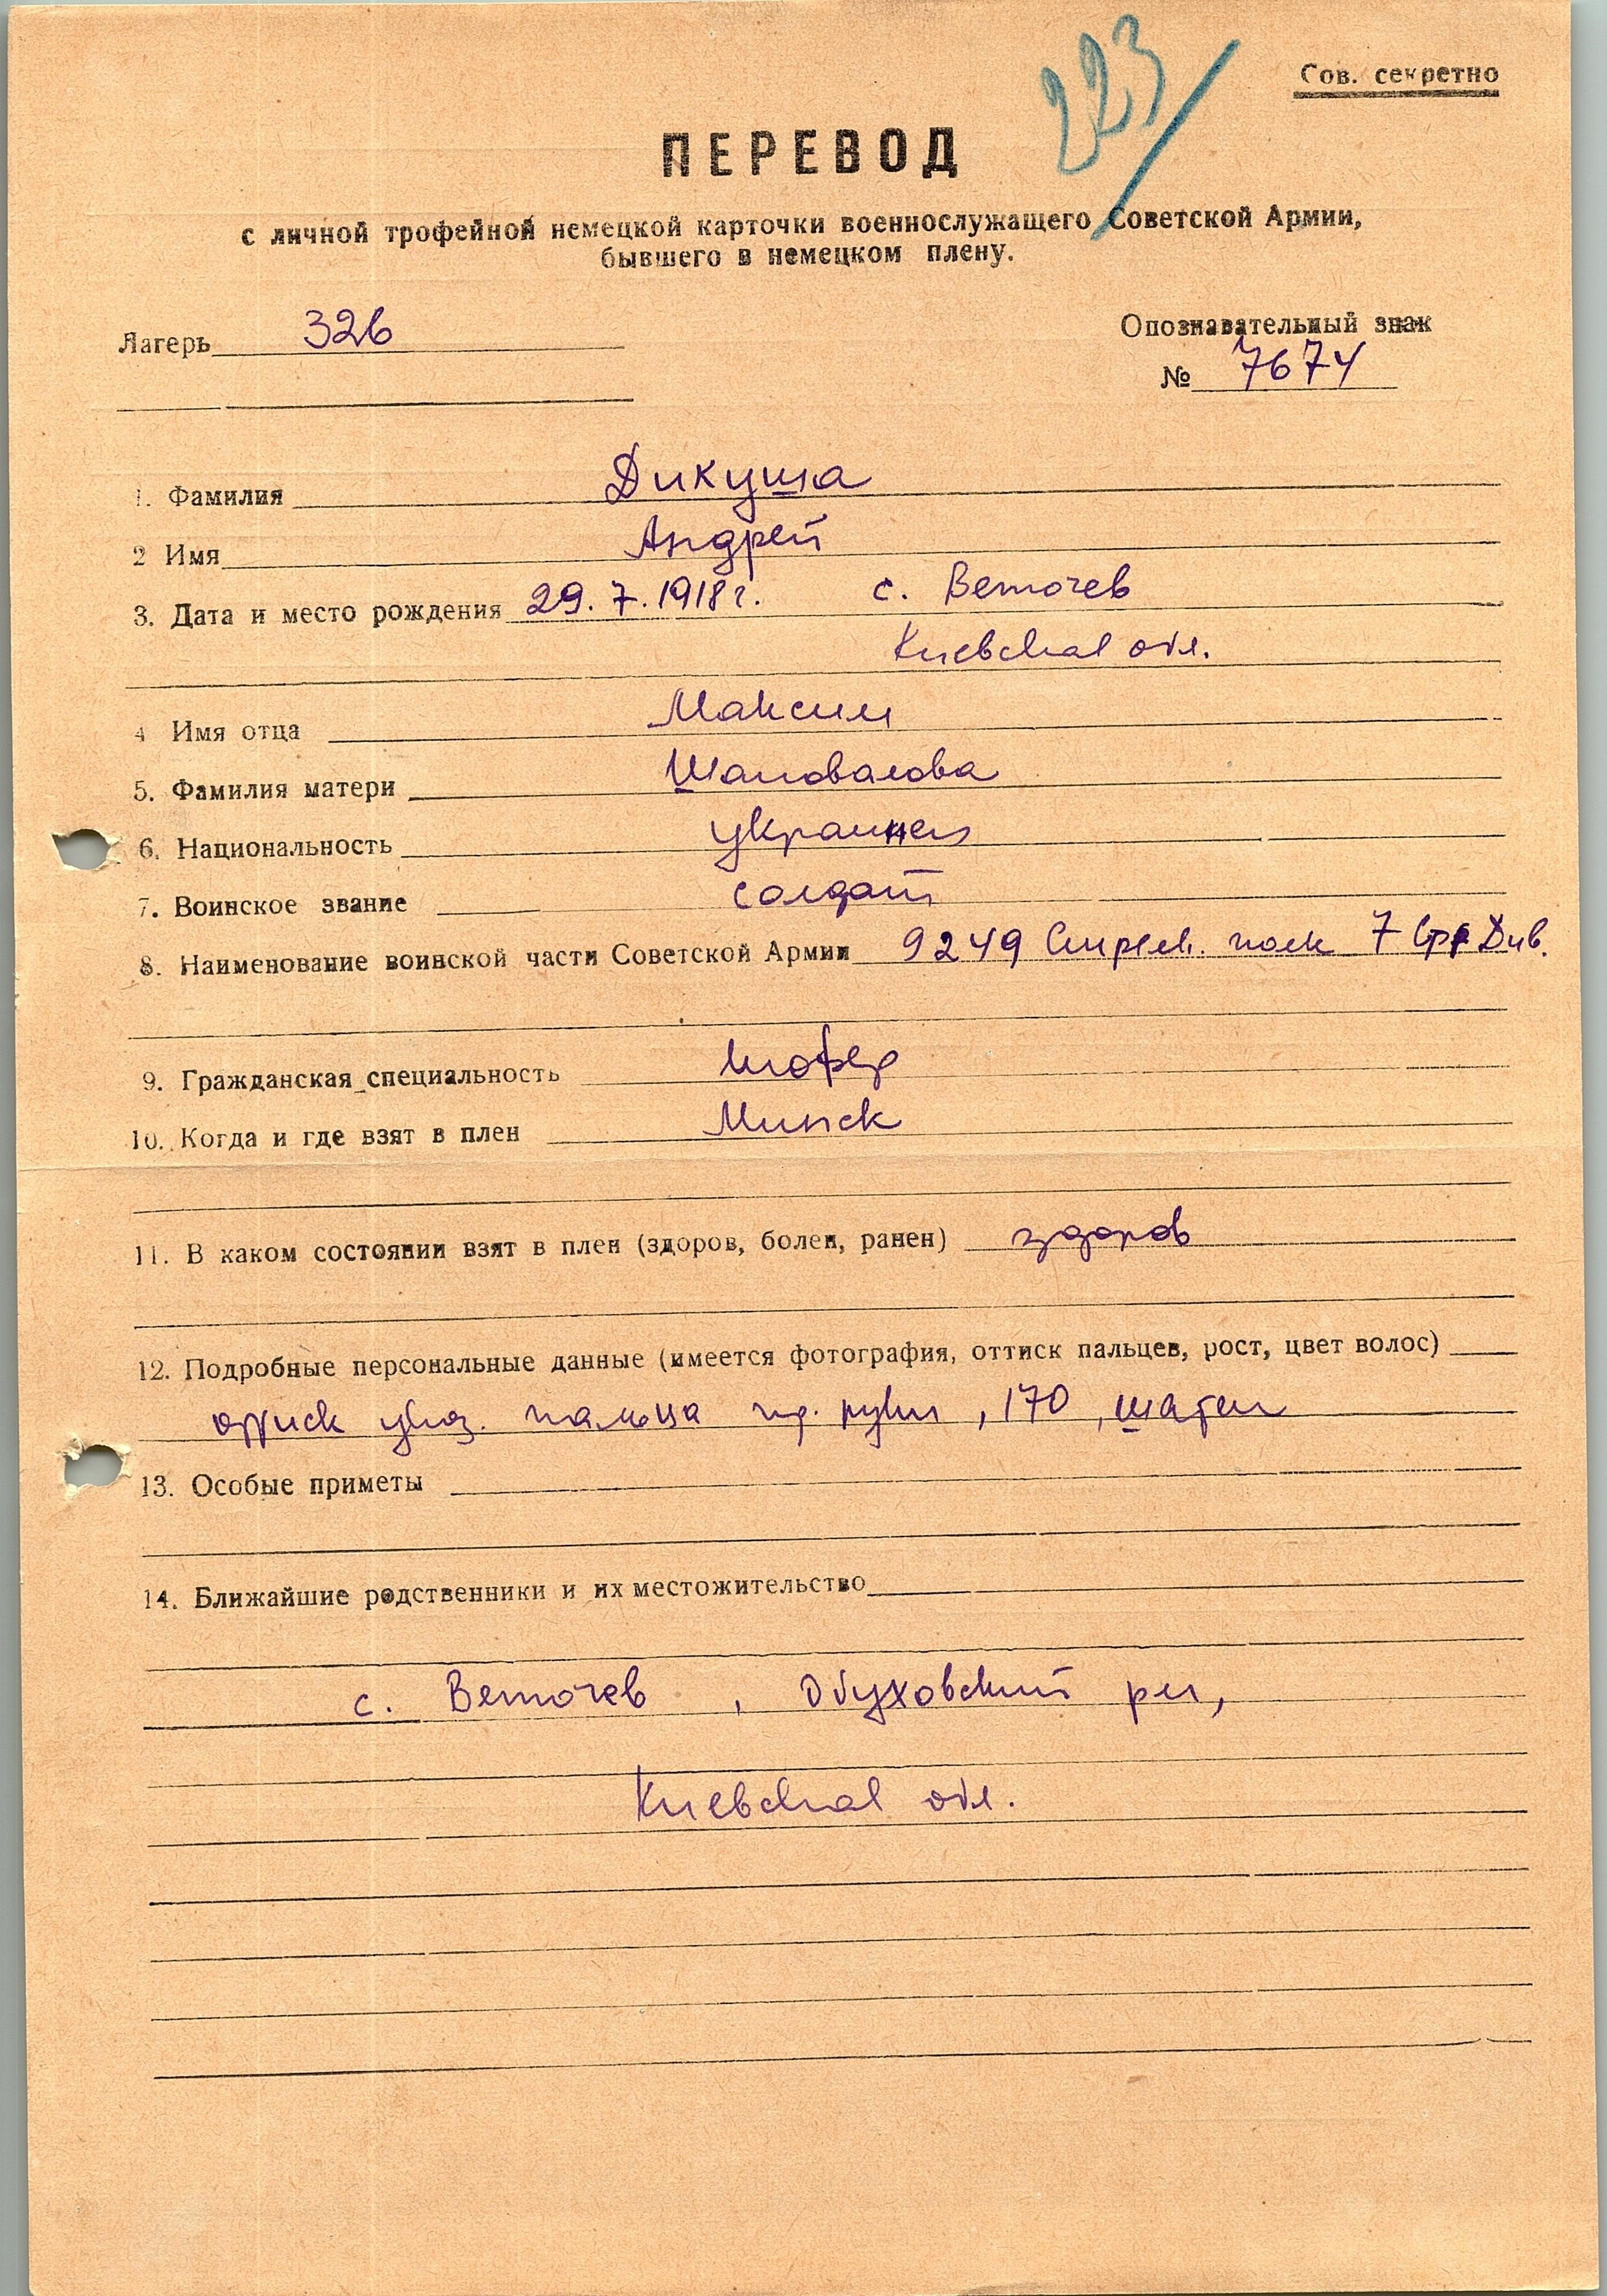 223/
Сов. секретно
ПЕРЕВОД
с личной трофейной немецкой карточки военнослужащего Советской Армии,
бывшего в немецком плену.
Лагерь 326
Опознавательный знак
№ 7674
1. Фамилия Дикуша
2 Имя Андрей
3. Дата и место рождения 29.7.1918 г. с. Веточев
Киевская обл.
4 Имя отца Максим
5. Фамилия матери Шаповалова
6. Национальность украинец
7. Воинское звание солдат
8. Наименование воинской части Советской Армии 9249 Стрелк. полк 7 Див.
9. Гражданская специальность шофер
10. Когда и где взят в плен Минск
11. В каком состоянии взят в плен (здоров, болен, ранен) здоров
12. Подробные персональные данные (имеется фотография, оттиск пальцев, рост, цвет волос)
оттиск указ. пальца пр. руки, 170, шатен
13. Особые приметы
14. Ближайшие родственники и их местожительство
с. Веточев, Обуховский р-н,
Киевская обл.